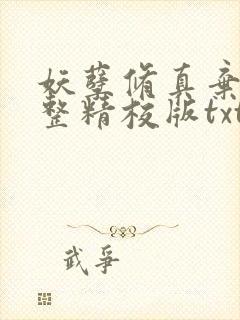 妖孽修真弃
整精校版txt
武争